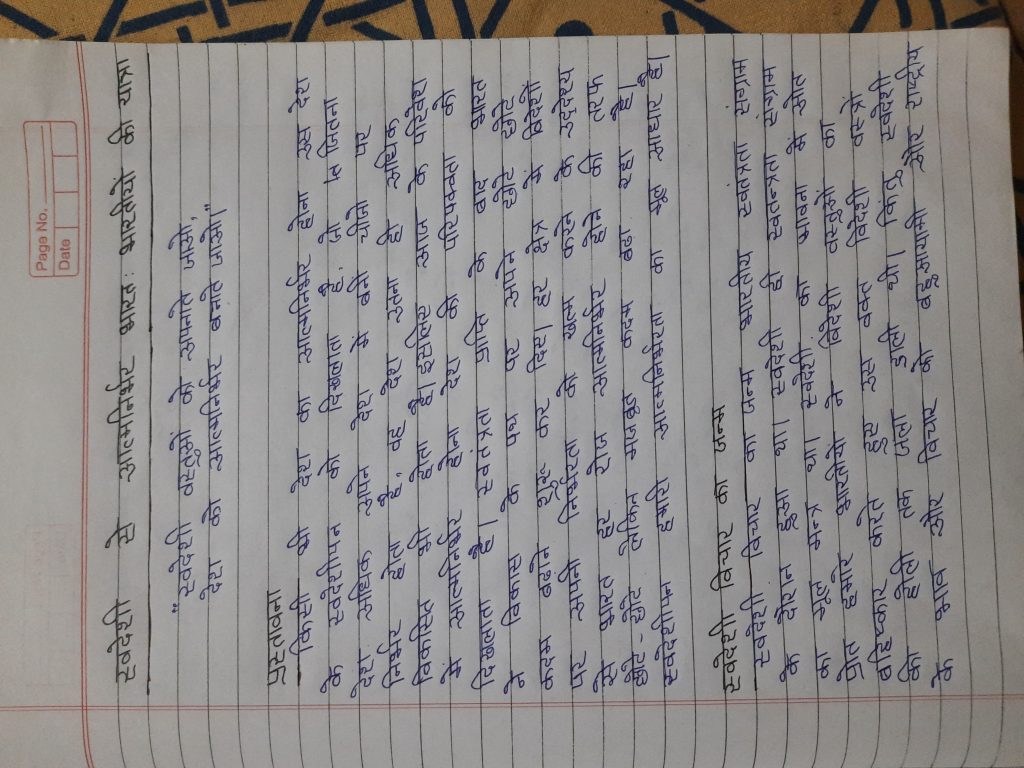 Page No.
Date
स्वदेशी से आत्मनिर्भर भारत: भारतीयों की यात्रा
"स्वदेशी वस्तुओं को अपनाते जाओ,
देश को आत्मनिर्भर बनाते जाओ।"
प्रस्तावना
किसी भी देश का आत्मनिर्भर होना उस देश
के स्वदेशीपन को दिखलाता है. जो जितना
देश अधिक अपने देश मे बनी चीजो पर
निर्भर होता है, वह देश उतना ही अधिक
विकसित भी होता है। इसलिए आज के परिवेश
में आत्मनिर्भर होना देश की परिपक्वता को
दिखलाता है। स्वतंत्रता प्राप्ति के बाद भारत
ने विकास के पथ पर अपने छोटे छोटे
कदम बढ़ाने शुरू कर दिए। हर क्षेत्र में विदेशो
पर अपनी निर्भरता को खत्म करने के उद्देश्य
से भारत हर रोज आत्मनिर्भर होने की तरफ
छोटे-छोटे लेकिन मजबूत कदम बढ़ा रहा है।
स्वदेशीपन हमारी आत्मनिर्भरता का मूल आधार है।
स्वदेशी विचार का जन्म
स्वदेशी विचार का जन्म भारतीय स्वतंत्रता संग्राम
के दौरान हुआ था। स्वदेशी ही स्वतन्त्रता संग्राम
का मूल मन्त्र था। स्वदेशी की भावना से ओत
प्रोत हमारे भारतीयो ने विदेशी वस्तुओं का
बहिष्कार करते हुए उस वक्त विदेशी वस्त्रो
की होली तक जला डाली थी। किंतु स्वदेशी
के भाव और विचार को बहुआयामी और राष्ट्रीय